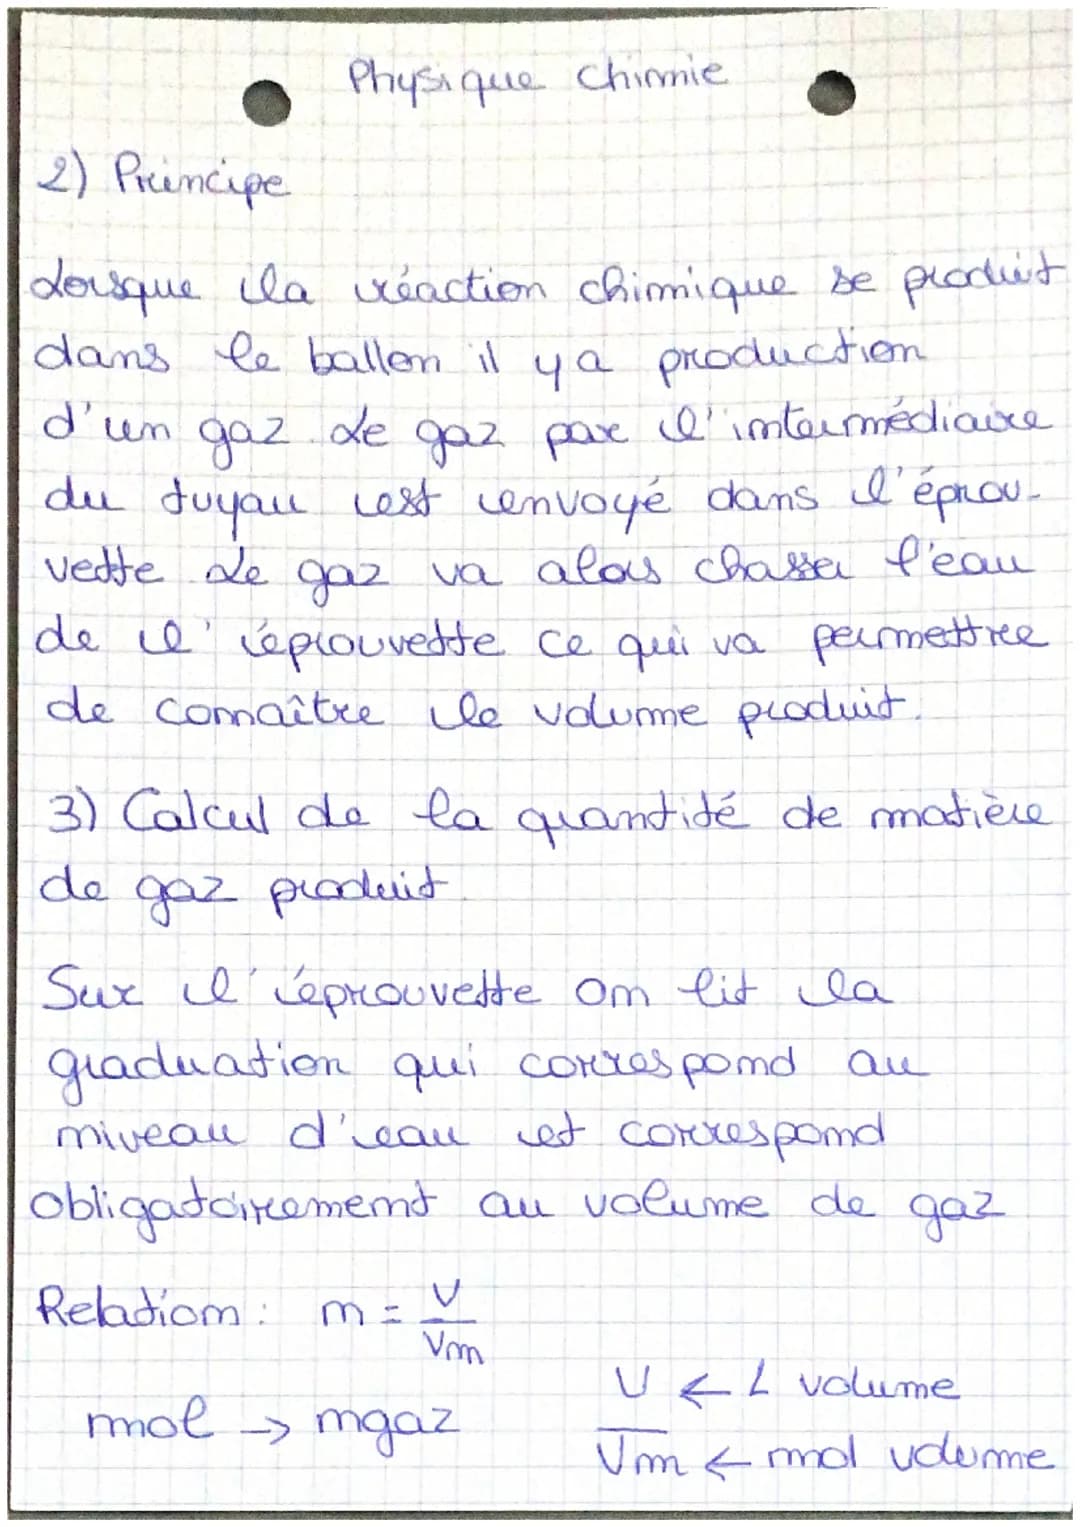 Physique chimie
2) Principe
Lorsque la réaction chimique se produit
dans le ballon il y a production
d'un gaz. Le gaz par l'intermédiaire
du tuyau est envoyé dans l'éprou-
vette Le gaz va alors chasser l'eau
de l'éprouvette ce qui va permettre
de connaître le volume produit.
3) Calcul de la quantité de matière
de gaz produit
Sur l'éprouvette on lit la
graduation qui correspond au
niveau d'eau et correspond
obligatoirement au volume de gaz
Relation : n = V
Vm
mol → ngaz
V ← L volume
Vm ← mol volume